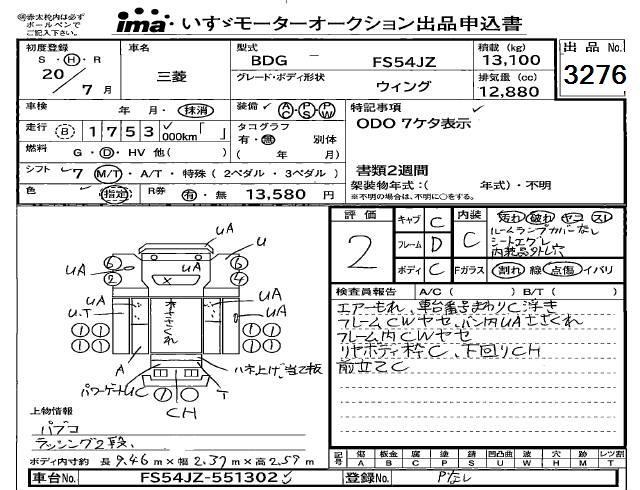 ㊟赤太枠内は必ず
ボールペンで
ご記入下さい。
ima いすゞモーターオークション出品申込書
初度登録 車名 型式 積載 (kg) 出品 No.
S・H・R 三菱 BDG － FS54JZ 13,100 3276
20/7月 グレード・ボディ形状 ウィング 排気量 (cc) 12,880
車検 年 月・抹消 装備 AC・PS・PW 特記事項
走行 B 1 7 5 3 000km「 」 タコグラフ 有・無 別体 ( 年 月) ODO 7ケタ表示
燃料 G・D・HV 他( )
シフト 7 M/T・A/T・特殊 (2ペダル・3ペダル) 書類2週間
色 指定 R券 有・無 13,580 円 架装物年式:( 年式)・不明
※不明の場合は、不明に○をする。
評価 2 キャブ C 内装 C 汚れ 破れ ヤコ スレ
ルームランプカバーなし
シートエグレ
内装品外し穴
フレーム D
ボディ C Fガラス 割れ 線 点傷 イバリ
検査員報告 A/C ( ) B/T ( )
エアーもれ、車台番号まわりC浮き
フレームCWヤセ、バン内UAささくれ
フレーム内CWヤセ
リヤボディ枠C、下回りCH
前立てC
UA
UA U
UA UA
UA UA
U.T U
床ささくれ
A
ハネ上げ、当て板
パワーゲートUC T
CH
上物情報
パブコ
ラッシング2段、
ボディ内寸約 長9.46m×幅2.37m×高2.57m
記号 傷 板金 腐 塗 錆 凹凸曲 波 穴 跡 レツ割
A B C P S U W H M T
車台No. FS54JZ-551302 登録No. Pなし